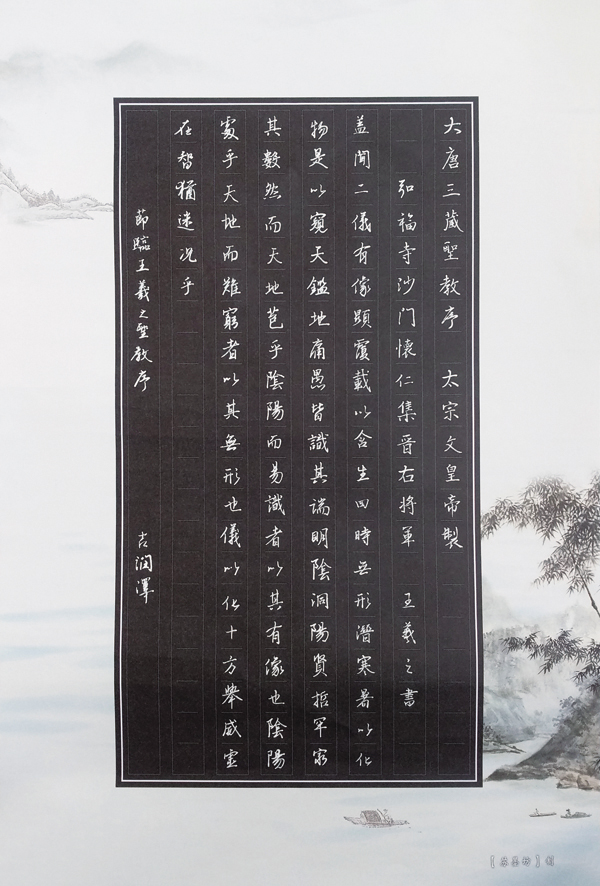 大唐三藏聖教序 太宗文皇帝製
弘福寺沙门懷仁集晉右將軍 王羲之書
盖聞二儀有像顯覆載以含生四時無形潛寒暑以化
物是以窺天鑑地庸愚皆識其端明陰洞陽賢哲罕窮
其數然而天地苞乎陰陽而易識者以其有像也陰陽
處乎天地而難窮者以其無形也儀以化十方舉威靈
在智猶迷况乎
節臨王羲之聖教序 吉潤澤